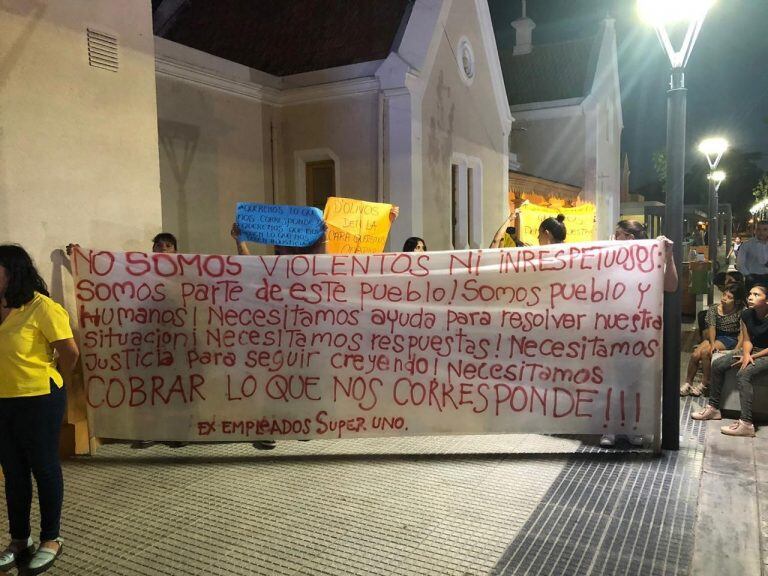 QUEREMOS LO QUE
NOS CORRESPONDE
QUEREMOS QUE
D'OLIVOS
DEN LA
CARA
NO SOMOS VIOLENTOS NI INRESPETUOSOS:
SOMOS PARTE DE ESTE PUEBLO! SOMOS PUEBLO Y
HUMANOS! NECESITAMOS AYUDA PARA RESOLVER NUESTRA
SITUACION! NECESITAMOS RESPUESTAS! NECESITAMOS
JUSTICIA PARA SEGUIR CREYENDO! NECESITAMOS
COBRAR LO QUE NOS CORRESPONDE!!!
EX EMPLEADOS SUPER UNO.